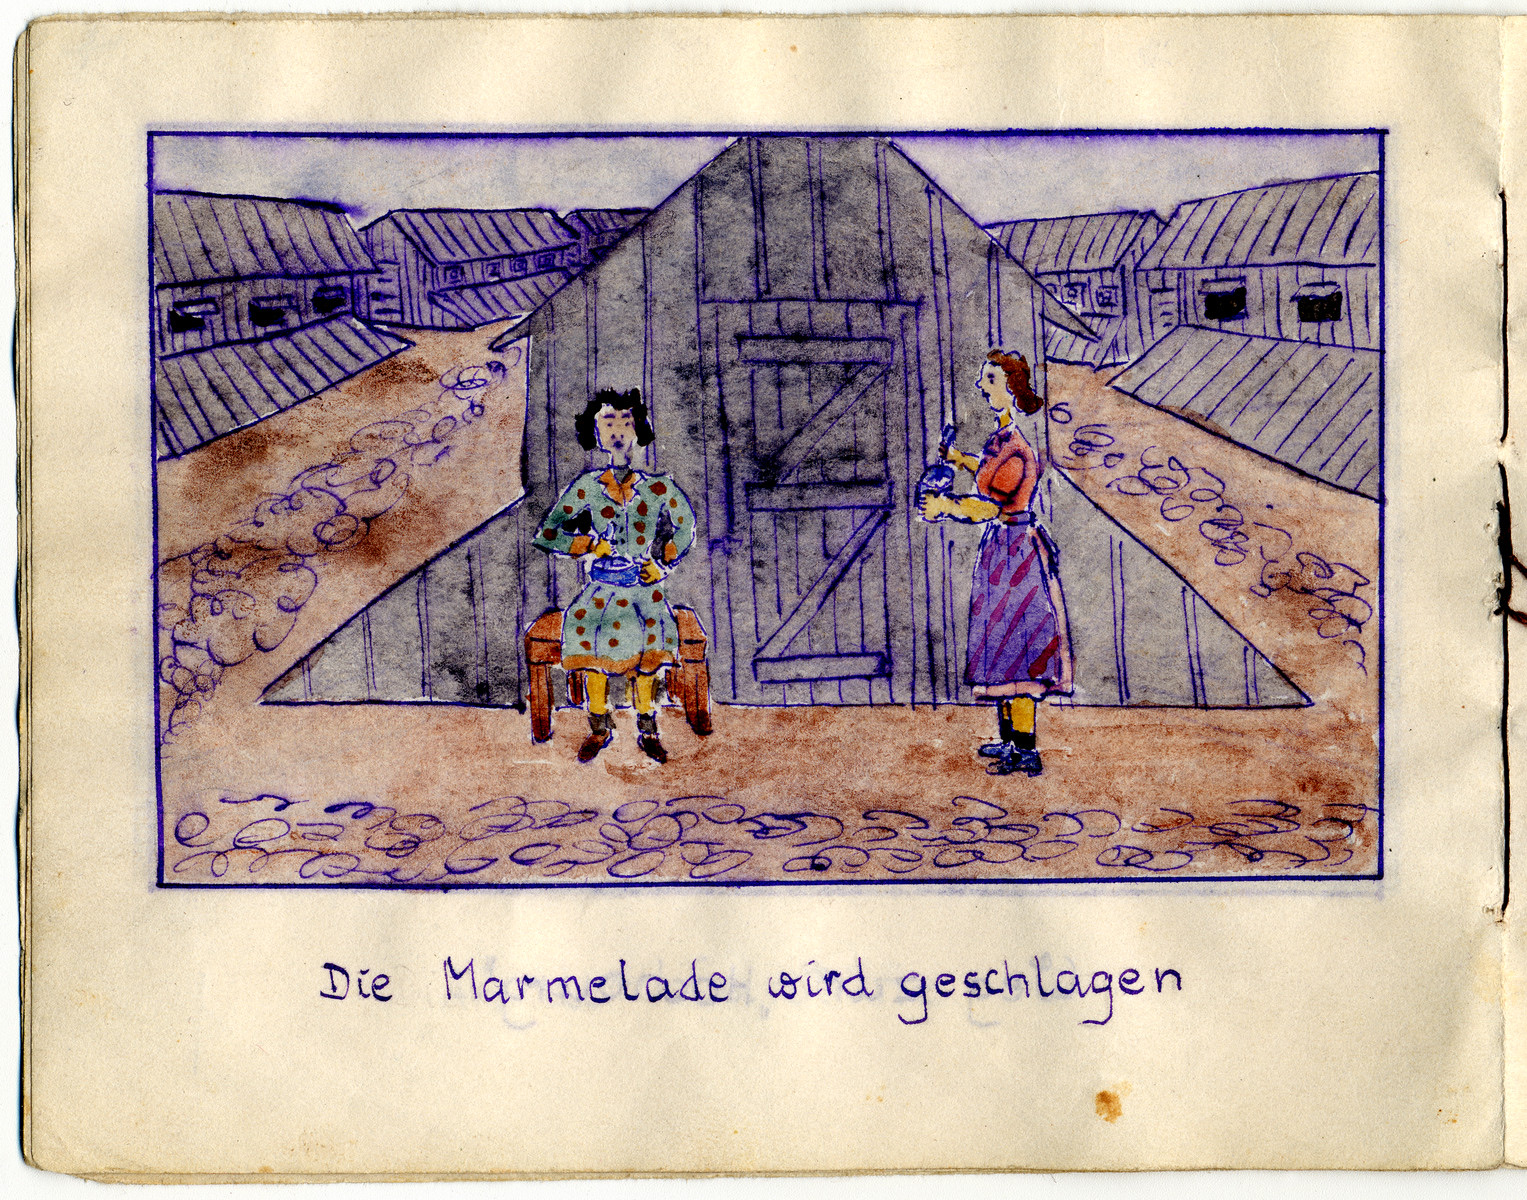 Die Marmelade wird geschlagen